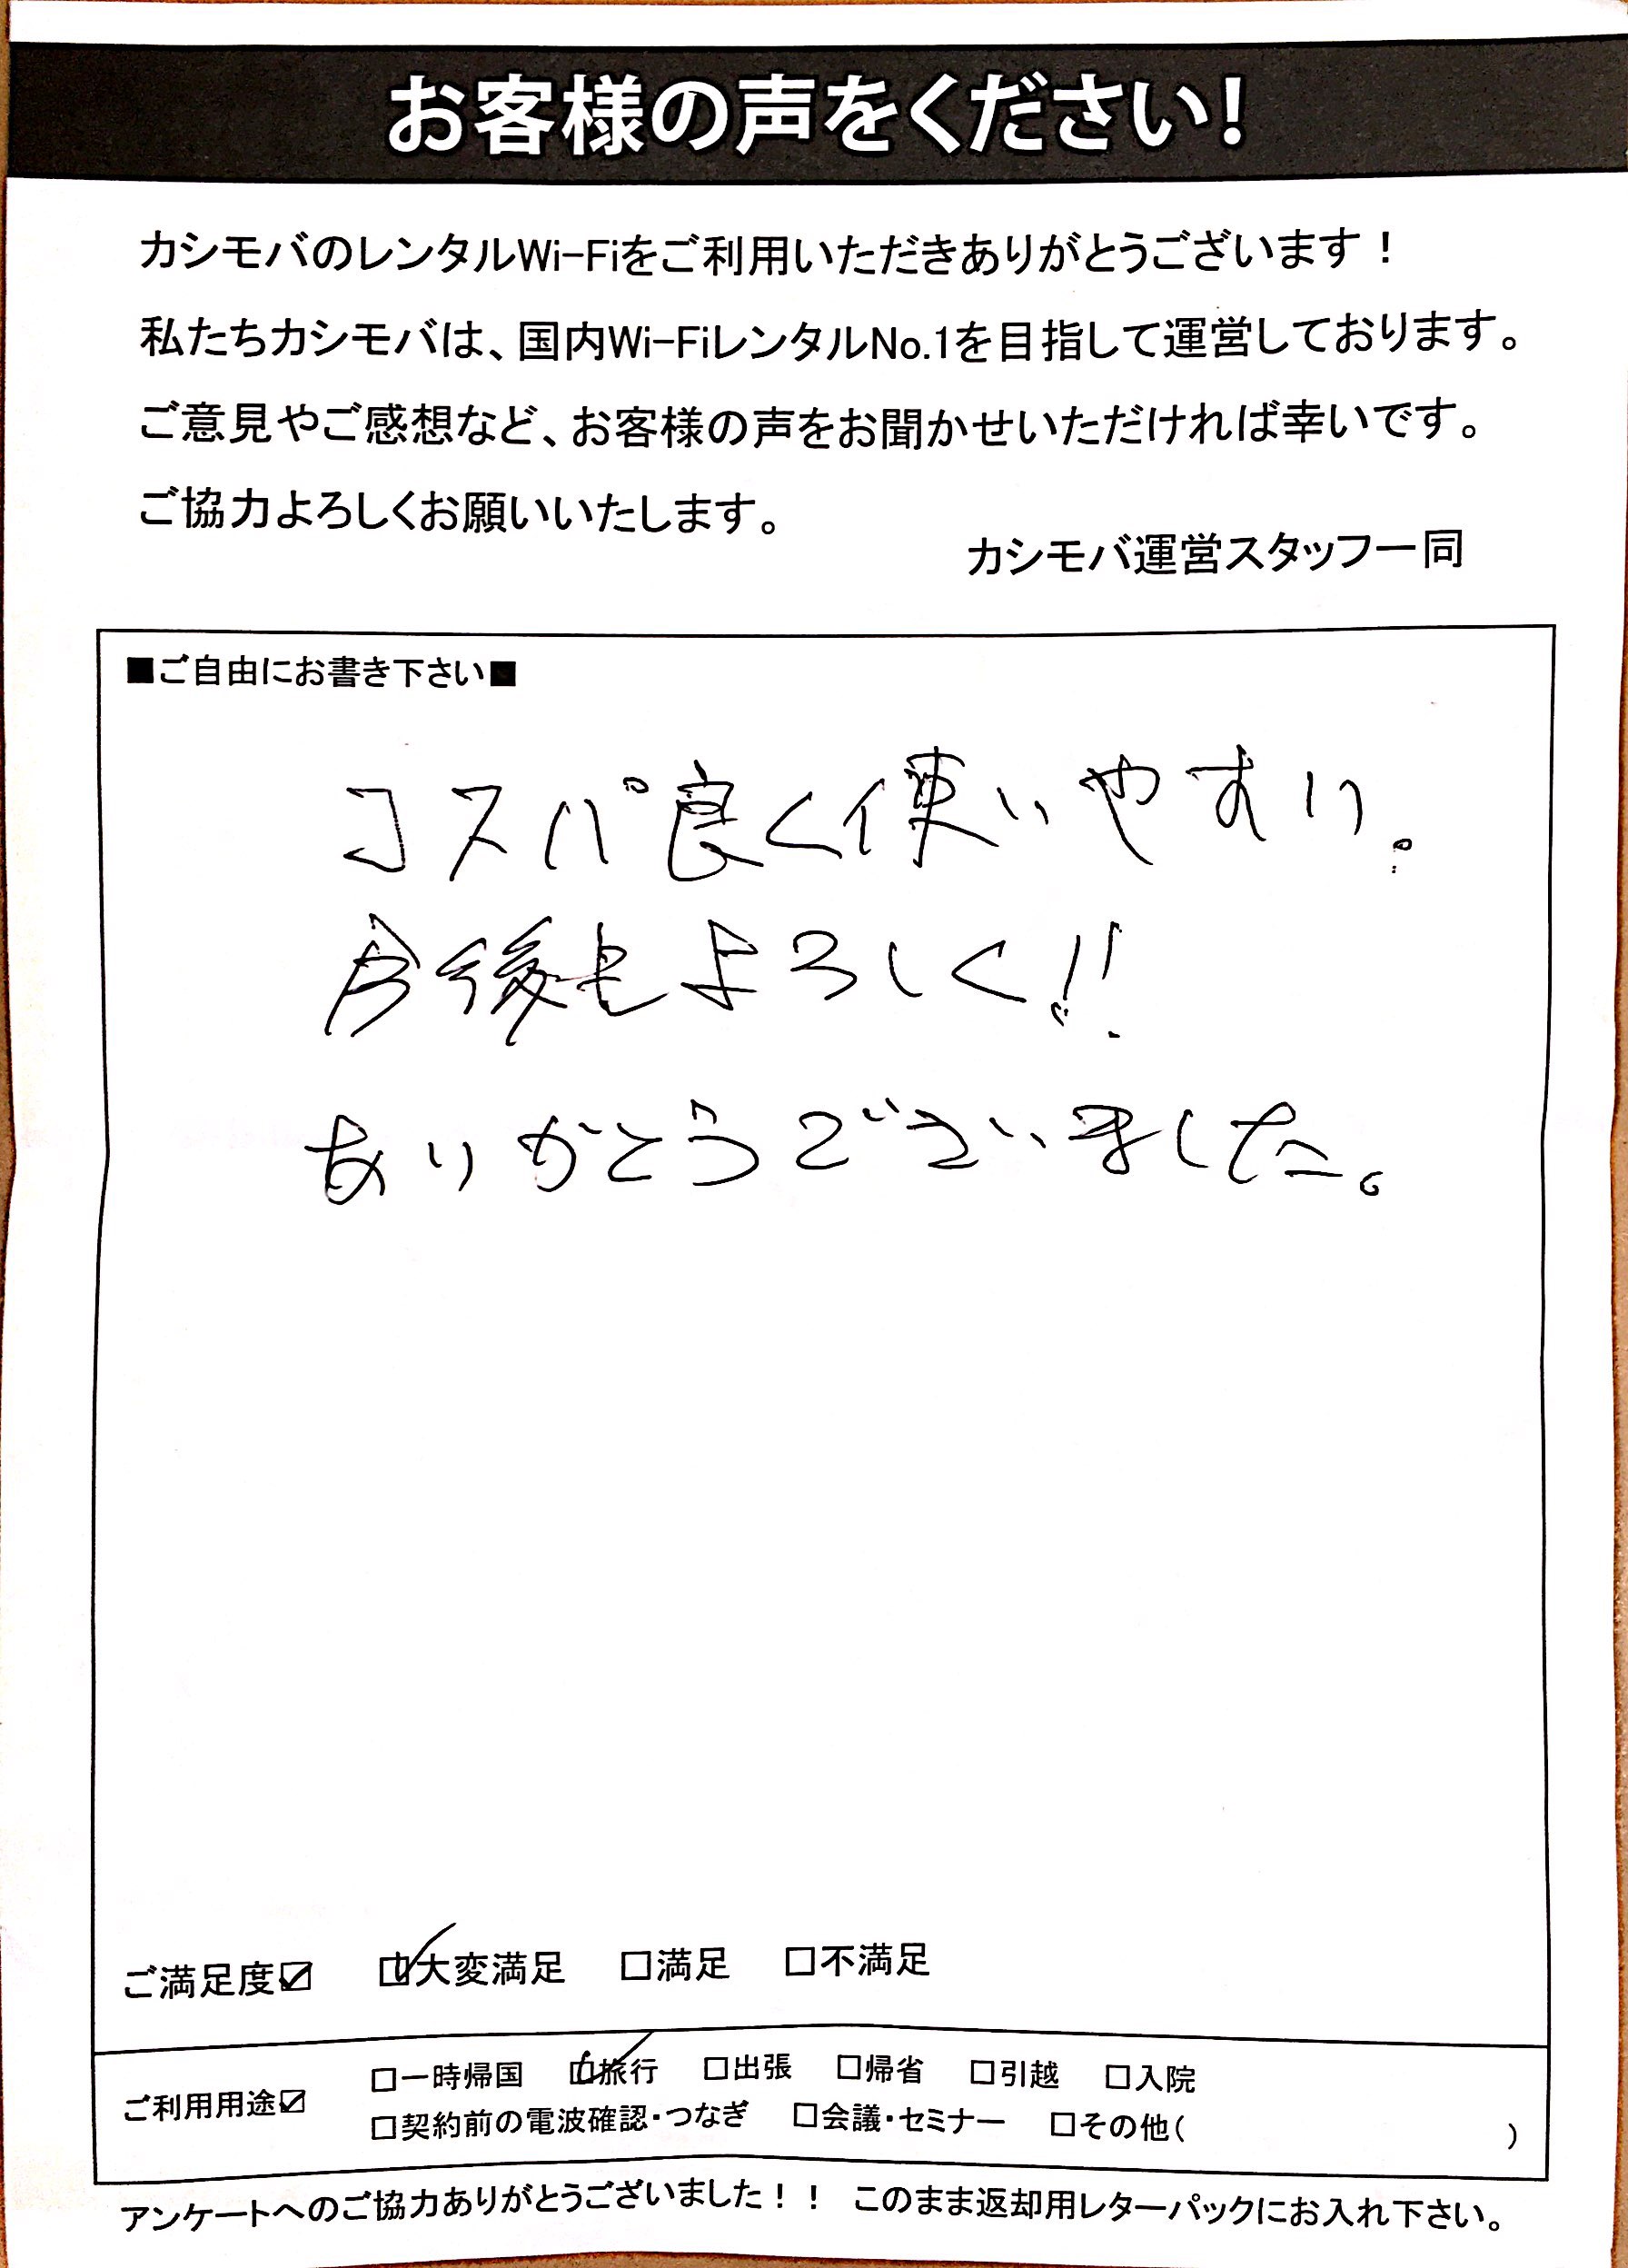 お客様の声をください!
カシモバのレンタルWi-Fiをご利用いただきありがとうございます！
私たちカシモバは、国内Wi-FiレンタルNo.1を目指して運営しております。
ご意見やご感想など、お客様の声をお聞かせいただければ幸いです。
ご協力よろしくお願いいたします。
カシモバ運営スタッフ一同
■ご自由にお書き下さい■
コスパ良く使いやすい。
今後もよろしく!!
ありがとうございました。
ご満足度☑ ☑大変満足 □満足 □不満足
ご利用用途☑ □一時帰国 ☑旅行 □出張 □帰省 □引越 □入院
□契約前の電波確認・つなぎ □会議・セミナー □その他( )
アンケートへのご協力ありがとうございました！！ このまま返却用レターパックにお入れ下さい。